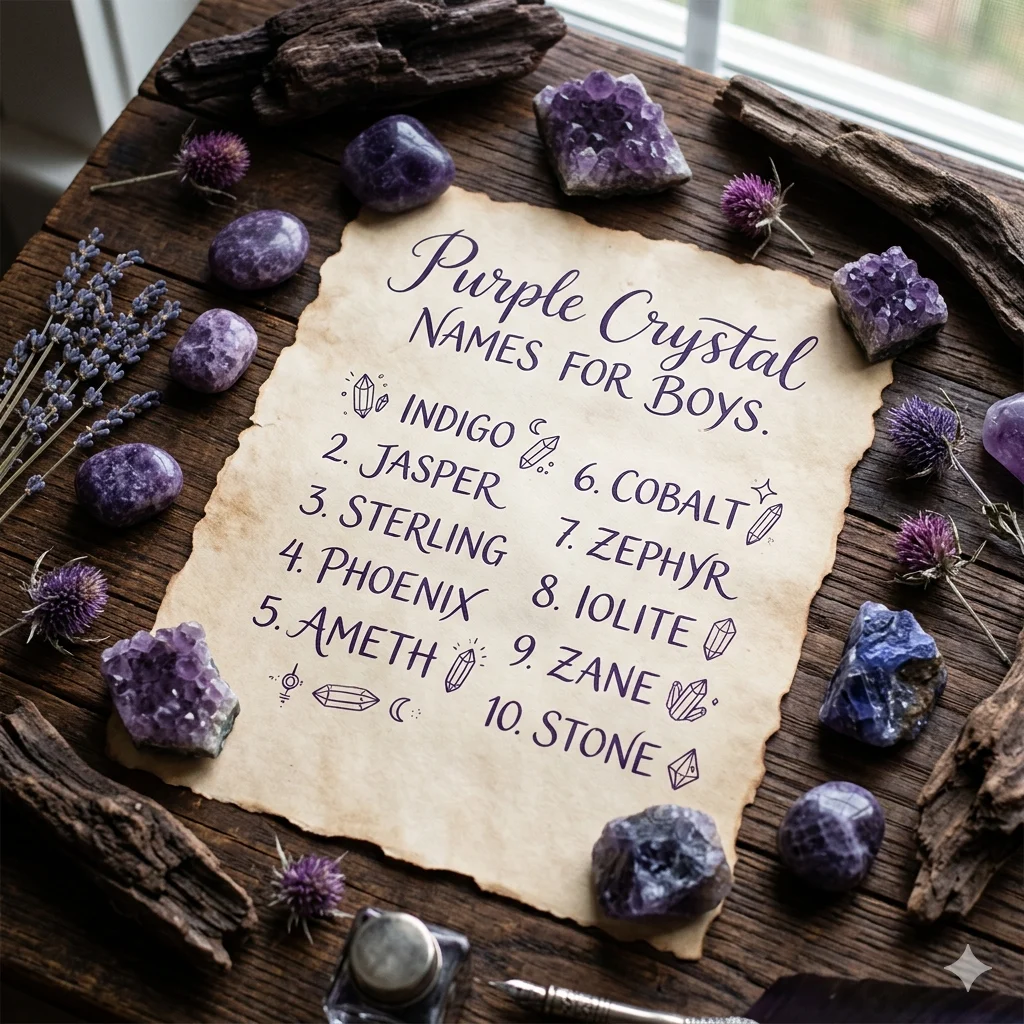 Purple Crystal
NAMES FOR BOYS.
INDIGO
2. JASPER
3. STERLING
4. PHOENIX
5. AMETH
6. COBALT
7. ZEPHYR
8. IOLITE
9. ZANE
10. STONE